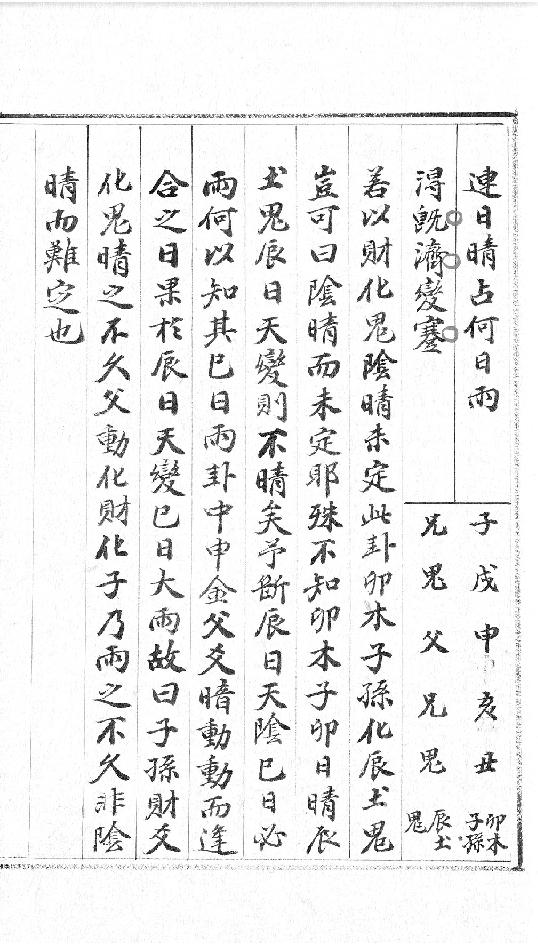 連日晴占何日雨
子戌申亥丑
卯木
子孫
得旣濟變蹇
兄鬼父兄鬼
辰土
鬼
若以財化鬼陰晴未定此卦卯木子孫化辰土鬼
豈可曰陰晴而未定耶殊不知卯木子卯日晴辰
土鬼辰日天變則不晴矣予斷辰日天陰巳日必
雨何以知其巳日雨卦中申金父爻暗動動而逢
合之日果於辰日天變巳日大雨故曰子孫財爻
化鬼晴之不久父動化財化子乃雨之不久非陰
晴而難定也